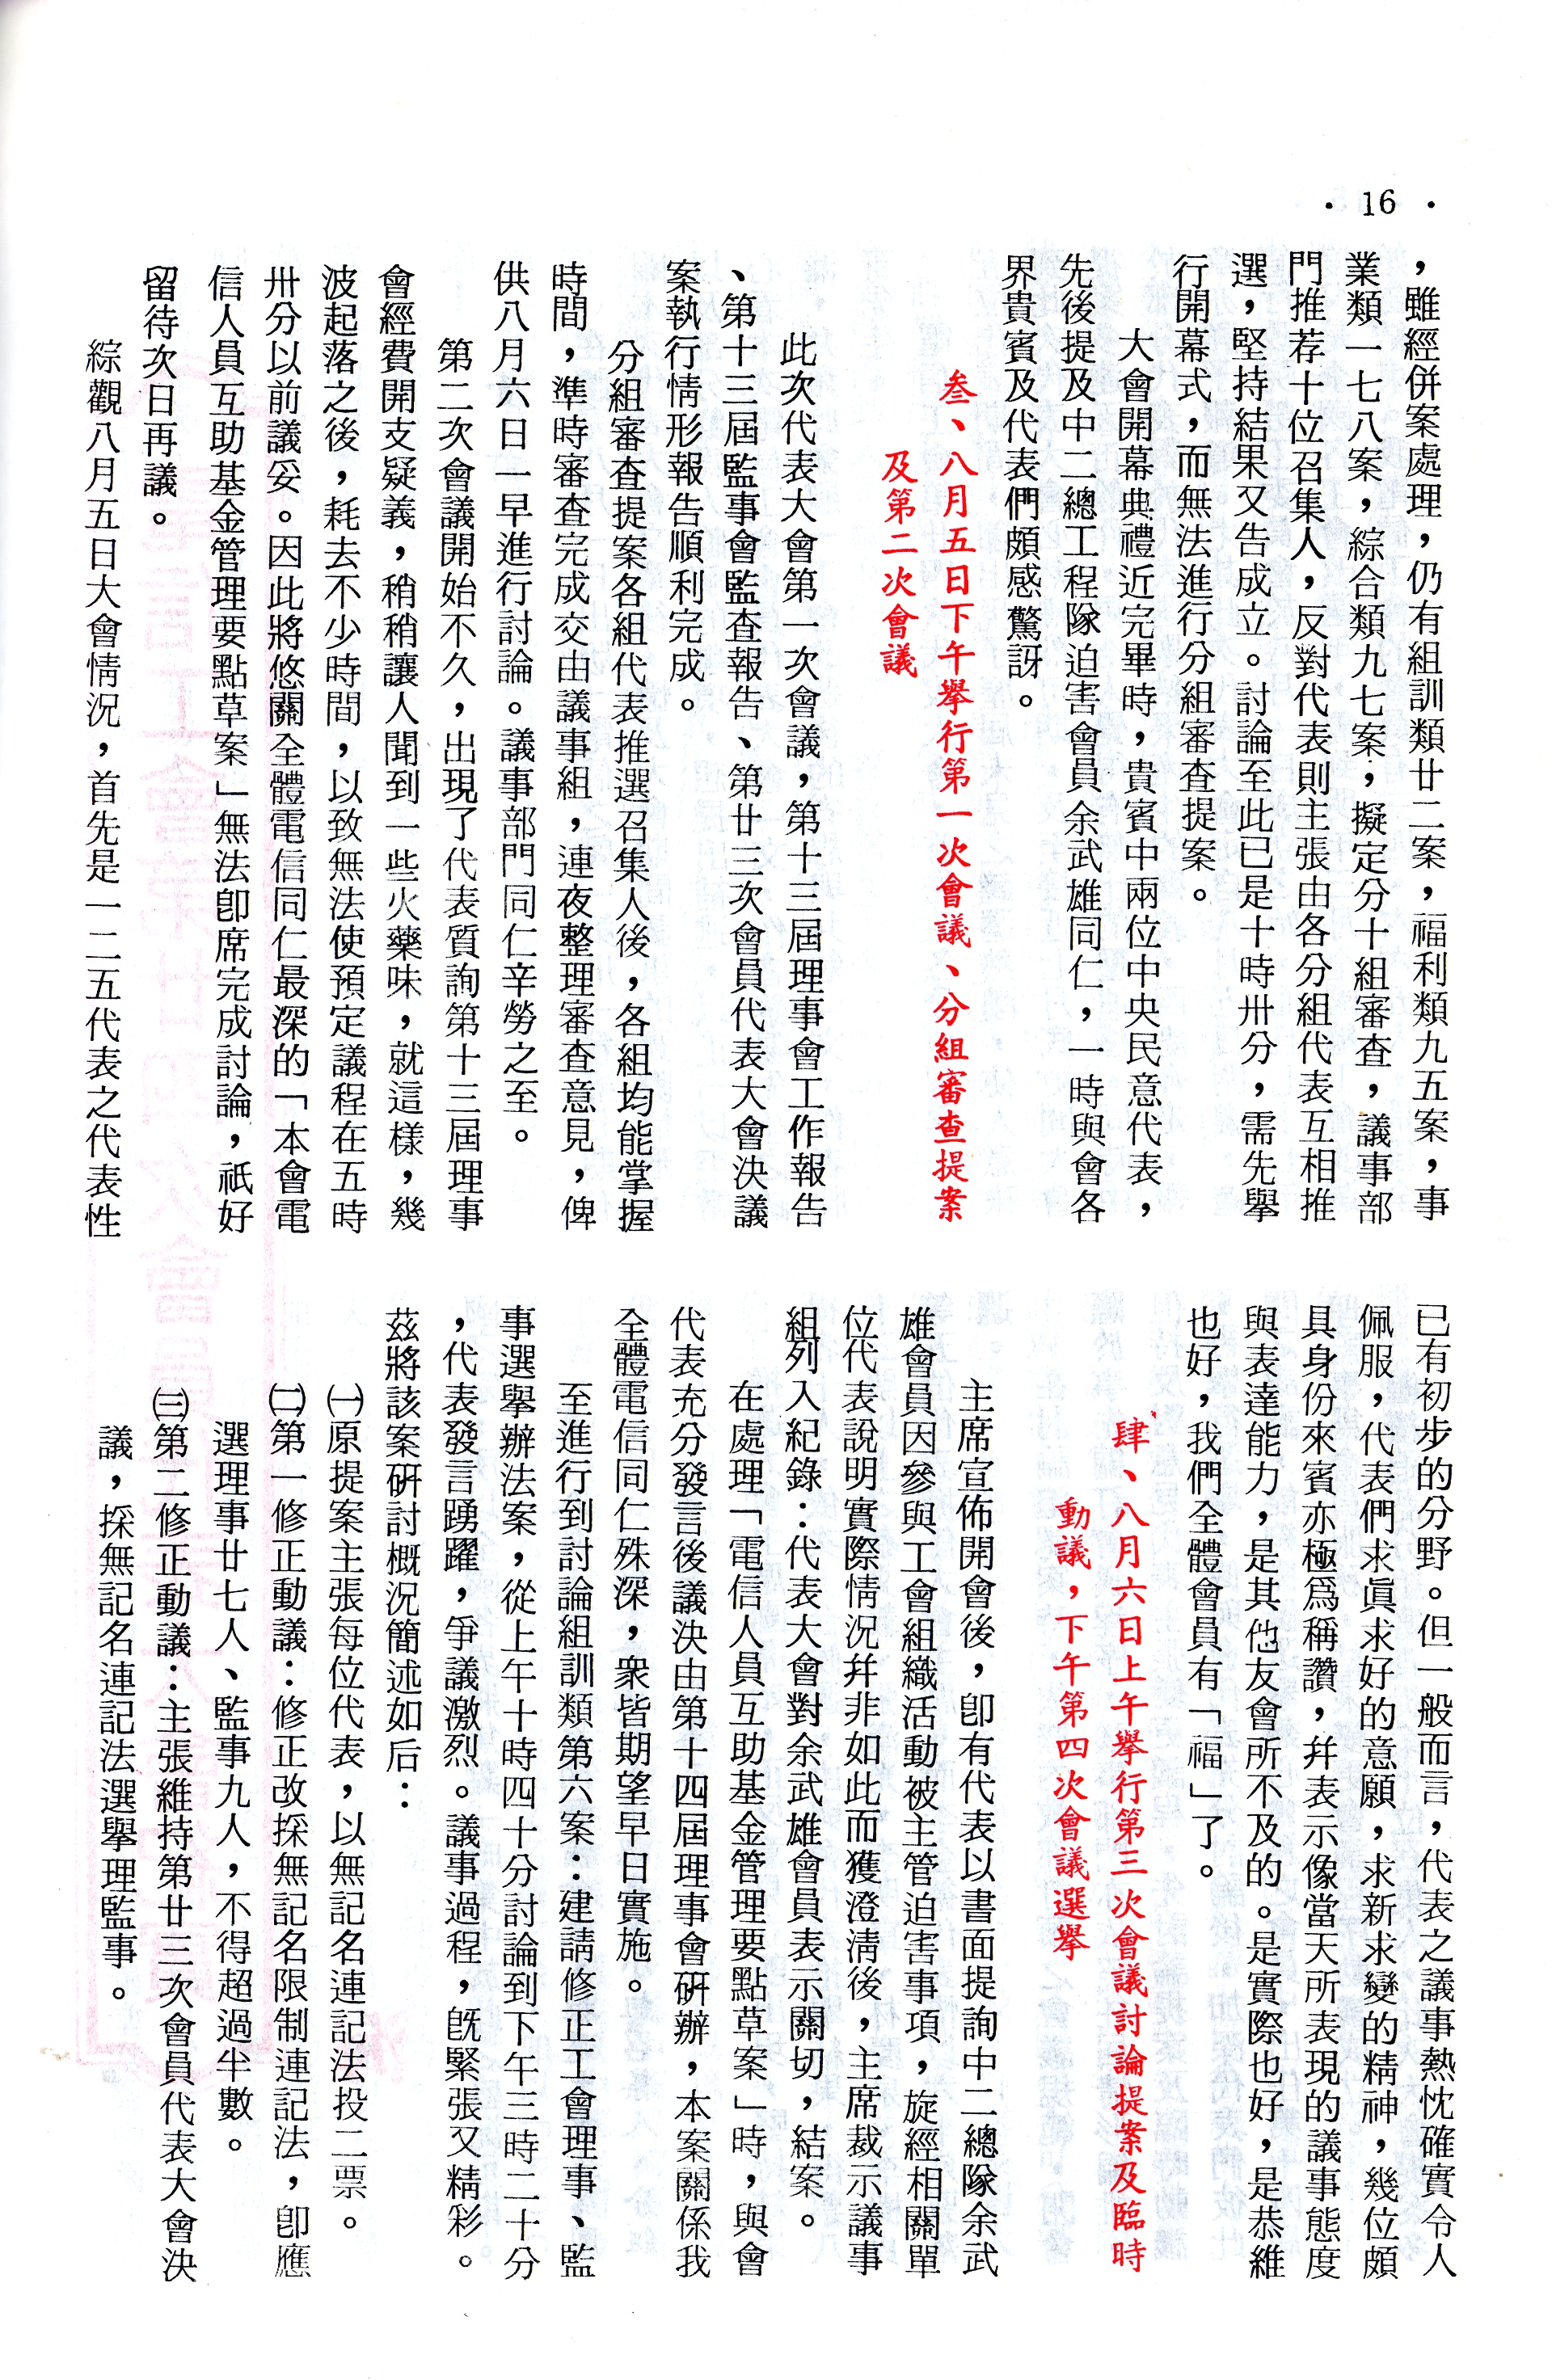 · 16 ·
，雖經併案處理，仍有組訓類廿二案，福利類九五案，事
業類一七八案，綜合類九七案，擬定分十組審查，議事部
門推荐十位召集人，反對代表則主張由各分組代表互相推
選，堅持結果又告成立。討論至此已是十時卅分，需先舉
行開幕式，而無法進行分組審查提案。
大會開幕典禮近完畢時，貴賓中兩位中央民意代表，
先後提及中二總工程隊迫害會員余武雄同仁，一時與會各
界貴賓及代表們頗感驚訝。
叁、八月五日下午舉行第一次會議、分組審查提案
及第二次會議
此次代表大會第一次會議，第十三屆理事會工作報告
、第十三屆監事會監查報告、第廿三次會員代表大會決議
案執行情形報告順利完成。
分組審查提案各組代表推選召集人後，各組均能掌握
時間，準時審查完成交由議事組，連夜整理審查意見，俾
供八月六日一早進行討論。議事部門同仁辛勞之至。
第二次會議開始不久，出現了代表質詢第十三屆理事
會經費開支疑義，稍稍讓人聞到一些火藥味，就這樣，幾
波起落之後，耗去不少時間，以致無法使預定議程在五時
卅分以前議妥。因此將悠關全體電信同仁最深的「本會電
信人員互助基金管理要點草案」無法卽席完成討論，祇好
留待次日再議。
綜觀八月五日大會情況，首先是一二五代表之代表性
已有初步的分野。但一般而言，代表之議事熱忱確實令人
佩服，代表們求眞求好的意願，求新求變的精神，幾位頗
具身份來賓亦極爲稱讚，幷表示像當天所表現的議事態度
與表達能力，是其他友會所不及的。是實際也好，是恭維
也好，我們全體會員有「福」了。
肆、八月六日上午舉行第三次會議討論提案及臨時
動議，下午第四次會議選舉
主席宣佈開會後，卽有代表以書面提詢中二總隊余武
雄會員因參與工會組織活動被主管迫害事項，旋經相關單
位代表說明實際情況幷非如此而獲澄淸後，主席裁示議事
組列入紀錄：代表大會對余武雄會員表示關切，結案。
在處理「電信人員互助基金管理要點草案」時，與會
代表充分發言後議決由第十四屆理事會硏辦，本案關係我
全體電信同仁殊深，衆皆期望早日實施。
至進行到討論組訓類第六案：建請修正工會理事、監
事選舉辦法案，從上午十時四十分討論到下午三時二十分
，代表發言踴躍，爭議激烈。議事過程，旣緊張又精彩。
茲將該案硏討概況簡述如后：
㈠原提案主張每位代表，以無記名連記法投二票。
㈡第一修正動議：修正改採無記名限制連記法，卽應
選理事廿七人、監事九人，不得超過半數。
㈢第二修正動議：主張維持第廿三次會員代表大會決
議，採無記名連記法選舉理監事。